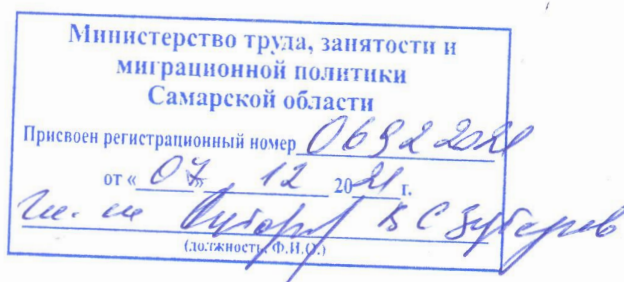 Министерство труда, занятости и
миграционной политики
Самарской области
Присвоен регистрационный номер 06922021
от « 07 » 12 2021 г.
В С
(должность, Ф.И.О.)